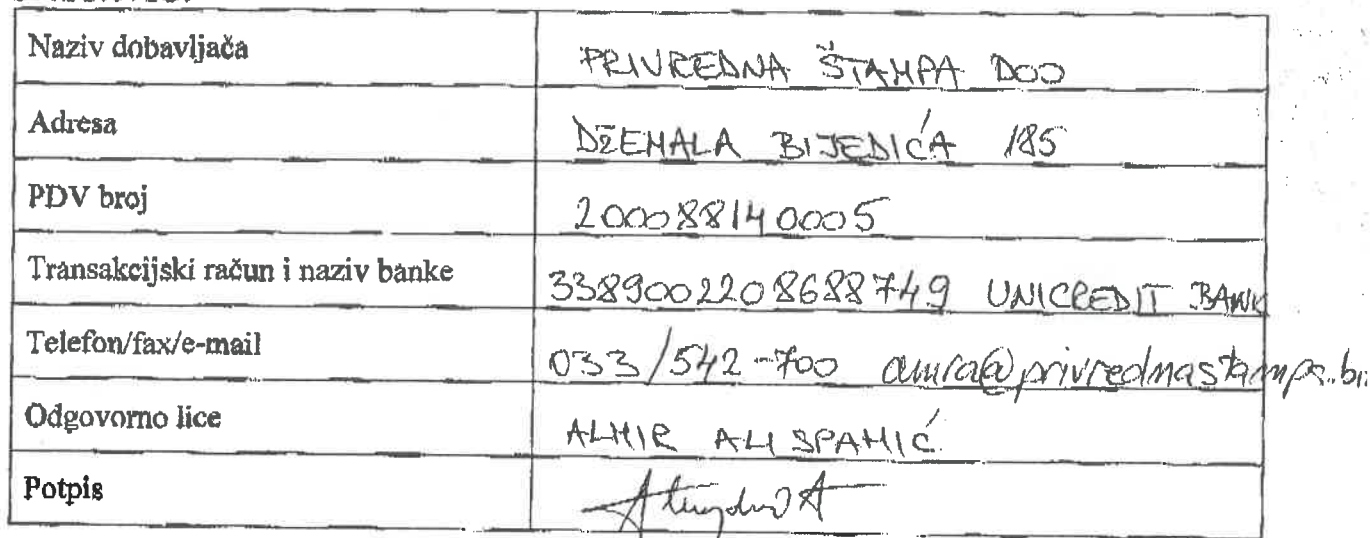 Naziv dobavljača PRIVREDNA ŠTAMPA DOO
Adresa DŽEMALA BIJEDIĆA 185
PDV broj 200088140005
Transakcijski račun i naziv banke 3389002208688749 UNICREDIT BANK
Telefon/fax/e-mail 033/542-700 amra@privrednastampa.bi
Odgovorno lice ALMIR ALISPAHIĆ
Potpis